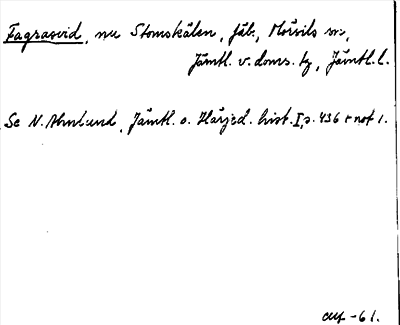 Fagrasvid, nu Stomskälen, fäb., Mörsils sn,
Jämtl. v. doms. tg, Jämtl. l.
Se N. Ahnlund, Jämtl. o. Härjed. hist. I, s. 436 + not 1.
-61.